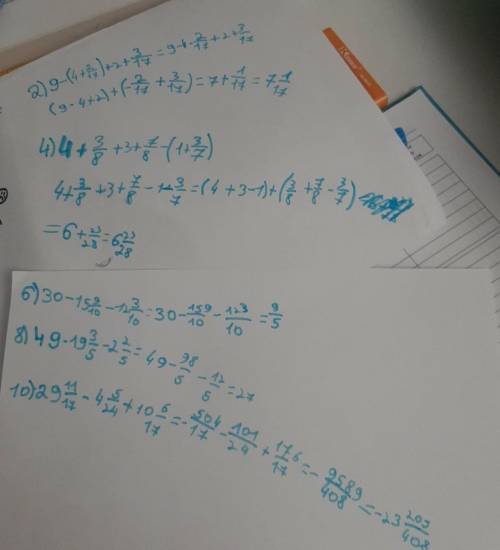 2) 9-(4+2/17)+2+3/17=9-4-2/17+2+3/17
(9-4+2)+(-2/17+3/17)=7+1/17=7 1/17
4) 4+3/8+3+7/8-(1+3/7)
4+3/8+3+7/8-1-3/7=(4+3-1)+(3/8+7/8-3/7)
=6+23/28=6 23/28
6) 30-15 9/10-12 3/10=30-159/10-123/10=9/5
8) 49-19 3/5-2 2/5=49-98/5-12/5=27
10) 29 11/17-4 5/24+10 6/17=-504/17-101/24+176/17=-9589/408=-23 205/408